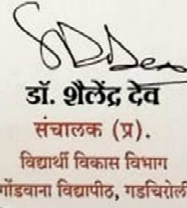 डॉ. शैलेंद्र देव
संचालक (प्र).
विद्यार्थी विकास विभाग
गोंडवाना विद्यापीठ, गडचिरोली